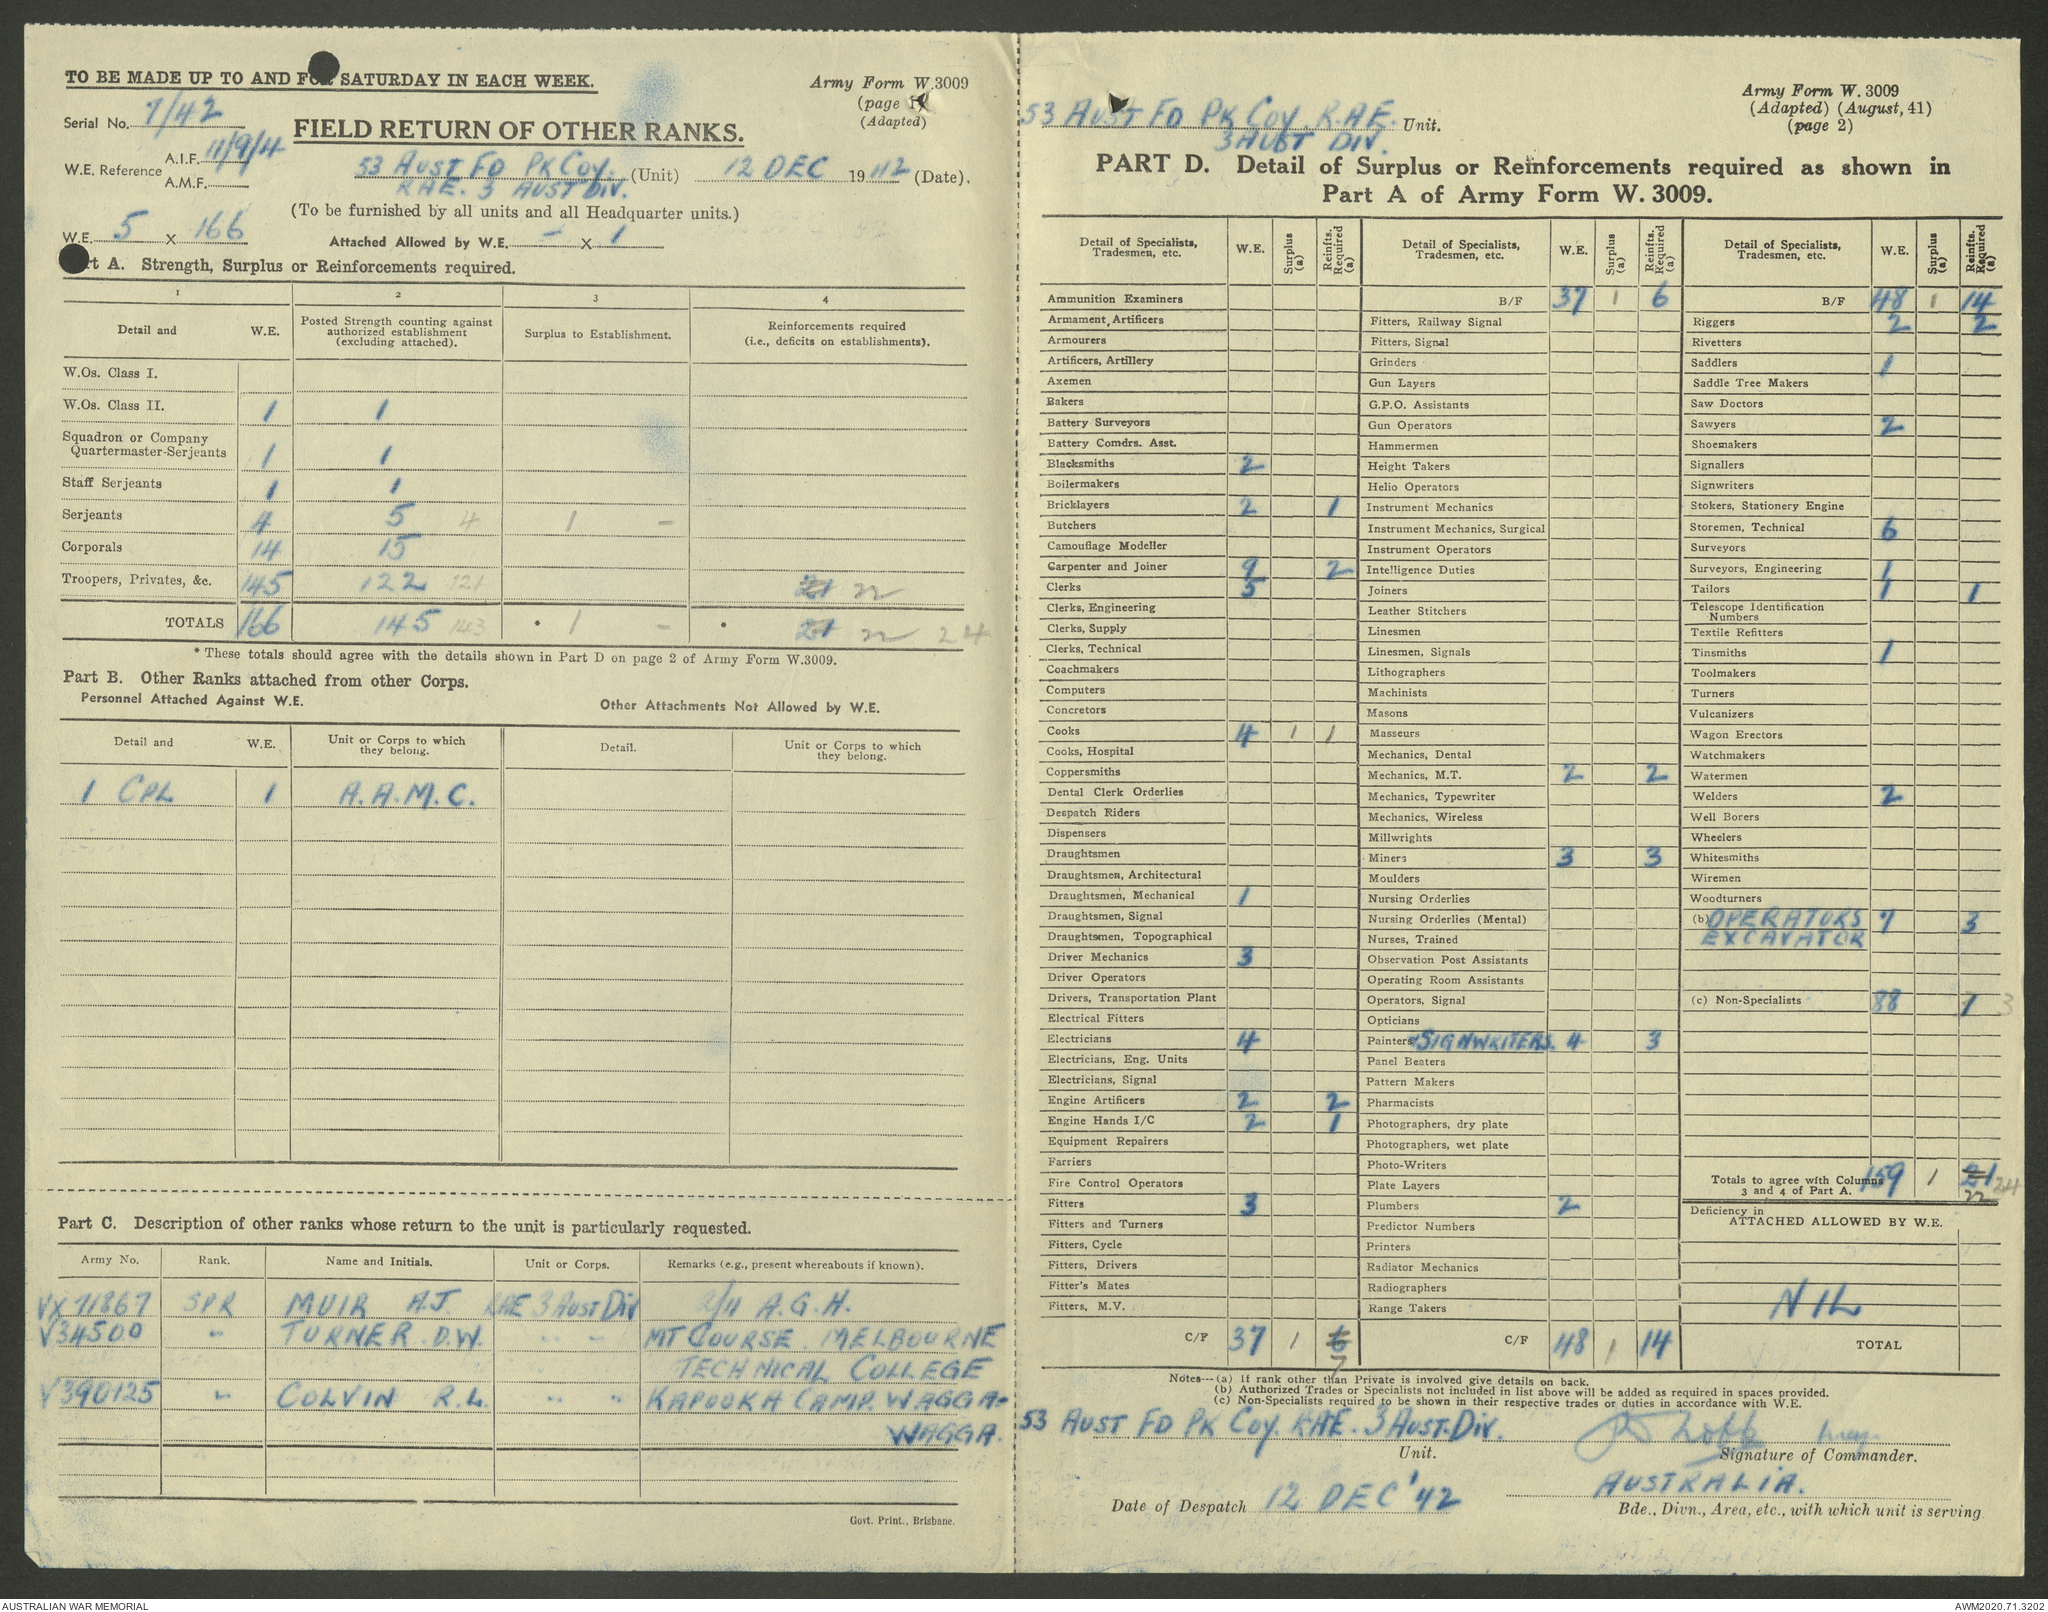 TO BE MADE UP TO AND FOR SATURDAY IN EACH WEEK.
Army Form W.3009
(page 1)
(Adapted)
Serial No. 7/42
FIELD RETURN OF OTHER RANKS.
W.E. Reference A.I.F. 11/9/4
A.M.F.
53 AUST FD PK COY. (Unit) 12 DEC 1942 (Date).
RAE. 3 AUST DIV.
(To be furnished by all units and all Headquarter units.)
W.E. 5 X 166
Attached Allowed by W.E. - X 1
Part A. Strength, Surplus or Reinforcements required.
1 2 3 4
Detail and W.E. Posted Strength counting against authorized establishment (excluding attached). Surplus to Establishment. Reinforcements required (i.e., deficits on establishments).
W.Os. Class I.
W.Os. Class II. 1 1
Squadron or Company
Quartermaster-Serjeants 1 1
Staff Serjeants 1 1
Serjeants 4 5 4 1 -
Corporals 14 15
Troopers, Privates, &c. 145 122 121 21 22
TOTALS 166 145 143 * 1 - * 21 22 24
* These totals should agree with the details shown in Part D on page 2 of Army Form W.3009.
Part B. Other Ranks attached from other Corps.
Personnel Attached Against W.E. Other Attachments Not Allowed by W.E.
Detail and W.E. Unit or Corps to which they belong. Detail. Unit or Corps to which they belong.
1 CPL 1 A.A.M.C.
Part C. Description of other ranks whose return to the unit is particularly requested.
Army No. Rank. Name and Initials. Unit or Corps. Remarks (e.g., present whereabouts if known).
VX71867 SPR MUIR A.J. RAE 3 AUST DIV 2/11 A.G.H.
V34500 " TURNER. D.W. " " MT COURSE. MELBOURNE
TECHNICAL COLLEGE
V390125 " COLVIN R.L. " " KAPOOKA CAMP. WAGGA-
WAGGA.
Govt. Print., Brisbane.
53 AUST FD PK COY. R.A.E. Unit.
3 AUST DIV.
Army Form W. 3009
(Adapted) (August, 41)
(page 2)
PART D. Detail of Surplus or Reinforcements required as shown in
Part A of Army Form W. 3009.
Detail of Specialists, Tradesmen, etc. W.E. Surplus (a) Reinfts. Required (a)
Ammunition Examiners
Armament Artificers
Armourers
Artificers, Artillery
Axemen
Bakers
Battery Surveyors
Battery Comdrs. Asst.
Blacksmiths 2
Boilermakers
Bricklayers 2 1
Butchers
Camouflage Modeller
Carpenter and Joiner 9 2
Clerks 5
Clerks, Engineering
Clerks, Supply
Clerks, Technical
Coachmakers
Computers
Concretors
Cooks 4 1 1
Cooks, Hospital
Coppersmiths
Dental Clerk Orderlies
Despatch Riders
Dispensers
Draughtsmen
Draughtsmen, Architectural
Draughtsmen, Mechanical 1
Draughtsmen, Signal
Draughtsmen, Topographical
Driver Mechanics 3
Driver Operators
Drivers, Transportation Plant
Electrical Fitters
Electricians 4
Electricians, Eng. Units
Electricians, Signal
Engine Artificers 2 2
Engine Hands I/C 2 1
Equipment Repairers
Farriers
Fire Control Operators
Fitters 3
Fitters and Turners
Fitters, Cycle
Fitters, Drivers
Fitter's Mates
Fitters, M.V.
C/F 37 1 6 7
Detail of Specialists, Tradesmen, etc. W.E. Surplus (a) Reinfts. Required (a)
B/F 37 1 6
Fitters, Railway Signal
Fitters, Signal
Grinders
Gun Layers
G.P.O. Assistants
Gun Operators
Hammermen
Height Takers
Helio Operators
Instrument Mechanics
Instrument Mechanics, Surgical
Instrument Operators
Intelligence Duties
Joiners
Leather Stitchers
Linesmen
Linesmen, Signals
Lithographers
Machinists
Masons
Masseurs
Mechanics, Dental
Mechanics, M.T. 2 2
Mechanics, Typewriter
Mechanics, Wireless
Millwrights
Miners 3 3
Moulders
Nursing Orderlies
Nursing Orderlies (Mental)
Nurses, Trained
Observation Post Assistants
Operating Room Assistants
Operators, Signal
Opticians
Painters & SIGNWRITERS. 4 3
Panel Beaters
Pattern Makers
Pharmacists
Photographers, dry plate
Photographers, wet plate
Photo-Writers
Plate Layers
Plumbers 2
Predictor Numbers
Printers
Radiator Mechanics
Radiographers
Range Takers
C/F 48 1 14
Detail of Specialists, Tradesmen, etc. W.E. Surplus (a) Reinfts. Required (a)
B/F 48 1 14
Riggers 2 2
Rivetters
Saddlers 1
Saddle Tree Makers
Saw Doctors
Sawyers 2
Shoemakers
Signallers
Signwriters
Stokers, Stationery Engine
Storemen, Technical 6
Surveyors
Surveyors, Engineering 1
Tailors 1 1
Telescope Identification
Numbers
Textile Refitters
Tinsmiths 1
Toolmakers
Turners
Vulcanizers
Wagon Erectors
Watchmakers
Watermen
Welders 2
Well Borers
Wheelers
Whitesmiths
Wiremen
Woodturners
(b) OPERATORS 7 3
EXCAVATOR
(c) Non-Specialists 88 1 3
Totals to agree with Columns
3 and 4 of Part A. 159 1 21 22 24
Deficiency in
ATTACHED ALLOWED BY W.E.
NIL
TOTAL
Notes—(a) If rank other than Private is involved give details on back.
(b) Authorized Trades or Specialists not included in list above will be added as required in spaces provided.
(c) Non-Specialists required to be shown in their respective trades or duties in accordance with W.E.
53 AUST FD PK COY. RAE. 3 AUST. DIV.
Unit.
Maj.
Signature of Commander.
Date of Despatch 12 DEC '42
AUSTRALIA.
Bde., Divn., Area, etc., with which unit is serving
AUSTRALIAN WAR MEMORIAL
AWM2020.71.3202